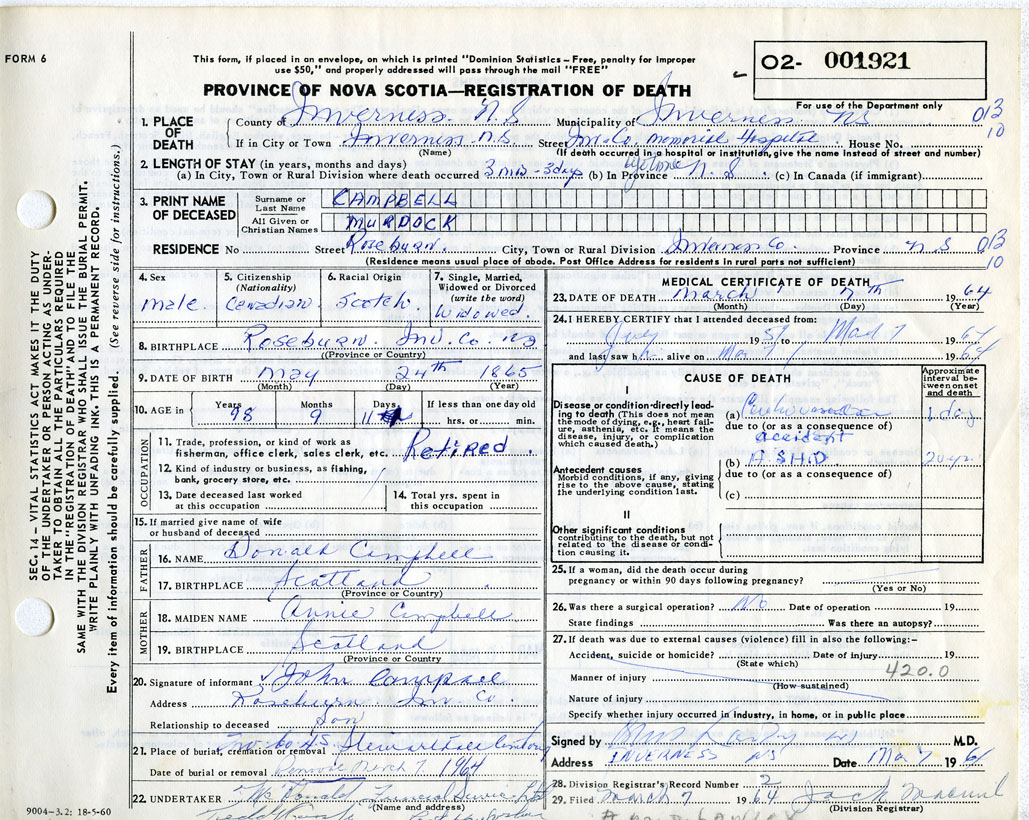 FORM 6
This form, if placed in an envelope, on which is printed "Dominion Statistics – Free, penalty for improper
use $50," and properly addressed will pass through the mail "FREE"
PROVINCE OF NOVA SCOTIA—REGISTRATION OF DEATH
02- 001921
For use of the Department only
1. PLACE OF DEATH
County of Inverness N.S Municipality of Inverness NS 013
If in City or Town Inverness N.S. Street Inv. Co. Memorial Hospital House No. 10
(Name) (If death occurred in a hospital or institution, give the name instead of street and number)
2. LENGTH OF STAY (in years, months and days)
(a) In City, Town or Rural Division where death occurred 3 mos - 3 days (b) In Province Lifetime N.S. (c) In Canada (if immigrant)
3. PRINT NAME OF DECEASED
Surname or Last Name CAMPBELL
All Given or Christian Names MURDOCK
RESIDENCE No Street Roseburn. City, Town or Rural Division Inverness Co. Province N.S 013
(Residence means usual place of abode. Post Office Address for residents in rural parts not sufficient) 10
4. Sex male
5. Citizenship (Nationality) Canadian
6. Racial Origin Scotch
7. Single, Married, Widowed or Divorced (write the word) Widowed.
8. BIRTHPLACE Roseburn. Inv. Co. NS
(Province or Country)
9. DATE OF BIRTH May 24th 1865
(Month) (Day) (Year)
10. AGE in Years 98 Months 9 Days 11 If less than one day old hrs. or min.
OCCUPATION
11. Trade, profession, or kind of work as
fisherman, office clerk, sales clerk, etc. Retired.
12. Kind of industry or business, as fishing,
bank, grocery store, etc.
13. Date deceased last worked
at this occupation
14. Total yrs. spent in
this occupation
15. If married give name of wife
or husband of deceased
FATHER
16. NAME Donald Campbell
17. BIRTHPLACE Scotland
(Province or Country)
MOTHER
18. MAIDEN NAME Annie Campbell
19. BIRTHPLACE Scotland
(Province or Country)
20. Signature of informant John Campbell
Address Roseburn Inv Co.
Relationship to deceased Son
21. Place of burial, cremation or removal
Date of burial or removal March 7 1964
22. UNDERTAKER
(Name and address)
9004-3.2: 18-5-60
MEDICAL CERTIFICATE OF DEATH
23. DATE OF DEATH March 7th 1964
(Month) (Day) (Year)
24. I HEREBY CERTIFY that I attended deceased from:
and last saw him alive on Mar 7 1964
CAUSE OF DEATH
Approximate interval between onset and death
I
Disease or condition directly leading to death (This does not mean the mode of dying, e.g., heart failure, asthenia, etc. It means the disease, injury, or complication which caused death.)
(a) Cerebrovascular 1 day
due to (or as a consequence of)
accident
Antecedent causes
Morbid conditions, if any, giving rise to the above cause, stating the underlying condition last.
(b) A.S.H.D.
due to (or as a consequence of)
(c)
II
Other significant conditions
contributing to the death, but not related to the disease or condition causing it.
25. If a woman, did the death occur during
pregnancy or within 90 days following pregnancy?
(Yes or No)
26. Was there a surgical operation? No Date of operation 19
State findings Was there an autopsy?
27. If death was due to external causes (violence) fill in also the following:–
Accident, suicide or homicide? Date of injury 19
(State which)
Manner of injury 420.0
(How sustained)
Nature of injury
Specify whether injury occurred in industry, in home, or in public place
Signed by M.D.
Address INVERNESS NS Date Mar 7 1964
28. Division Registrar's Record Number 2
29. Filed March 7 1964 Jack
(Division Registrar)
SEC. 14 – VITAL STATISTICS ACT MAKES IT THE DUTY
OF THE UNDERTAKER OR PERSON ACTING AS UNDER-
TAKER TO OBTAIN ALL THE PARTICULARS REQUIRED
IN THE "REGISTRATION OF DEATH" AND TO FILE THE
SAME WITH THE DIVISION REGISTRAR WHO SHALL ISSUE THE BURIAL PERMIT.
WRITE PLAINLY WITH UNFADING INK. THIS IS A PERMANENT RECORD.
Every item of information should be carefully supplied. (See reverse side for instructions.)